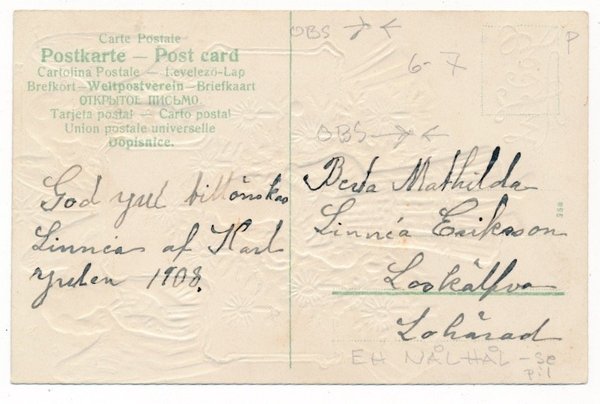 Carte Postale
Postkarte — Post card
Cartolina Postale — Levelező-Lap
Brefkort — Weltpostverein — Briefkaart
ОТКРЫТОЕ ПИСЬМО
Tarjeta postal — Carto postal
Union postale universelle
Dopisnice.
God jul tillönskas
Linnea af Karl
Julen 1908.
OBS
6-7
P
OBS
Berta Mathilda
Linnéa Eriksson
Lohärad
EH NÅLHÅL - se
pil
358